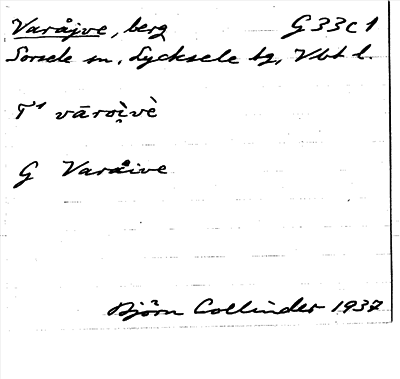 Varåjve, berg G33c1
Sorsele sn, Lycksele tg, Vbt l.
T¹ vārọì̯vè
G Varåive
Björn Collinder 1937